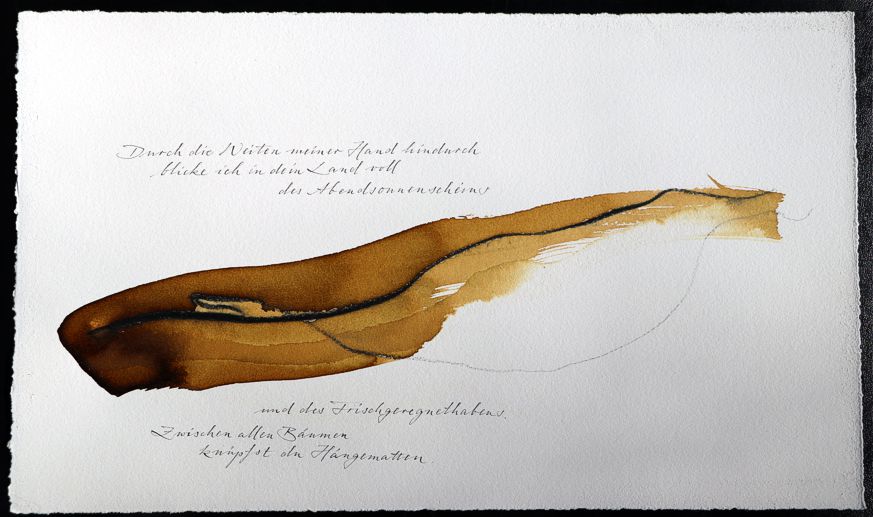 Durch die Weiten meiner Hand hindurch
blicke ich in dein Land voll
des Abendsonnenscheins
und des Frischgeregnethabens.
Zwischen allen Bäumen
knüpfst du Hängematten.